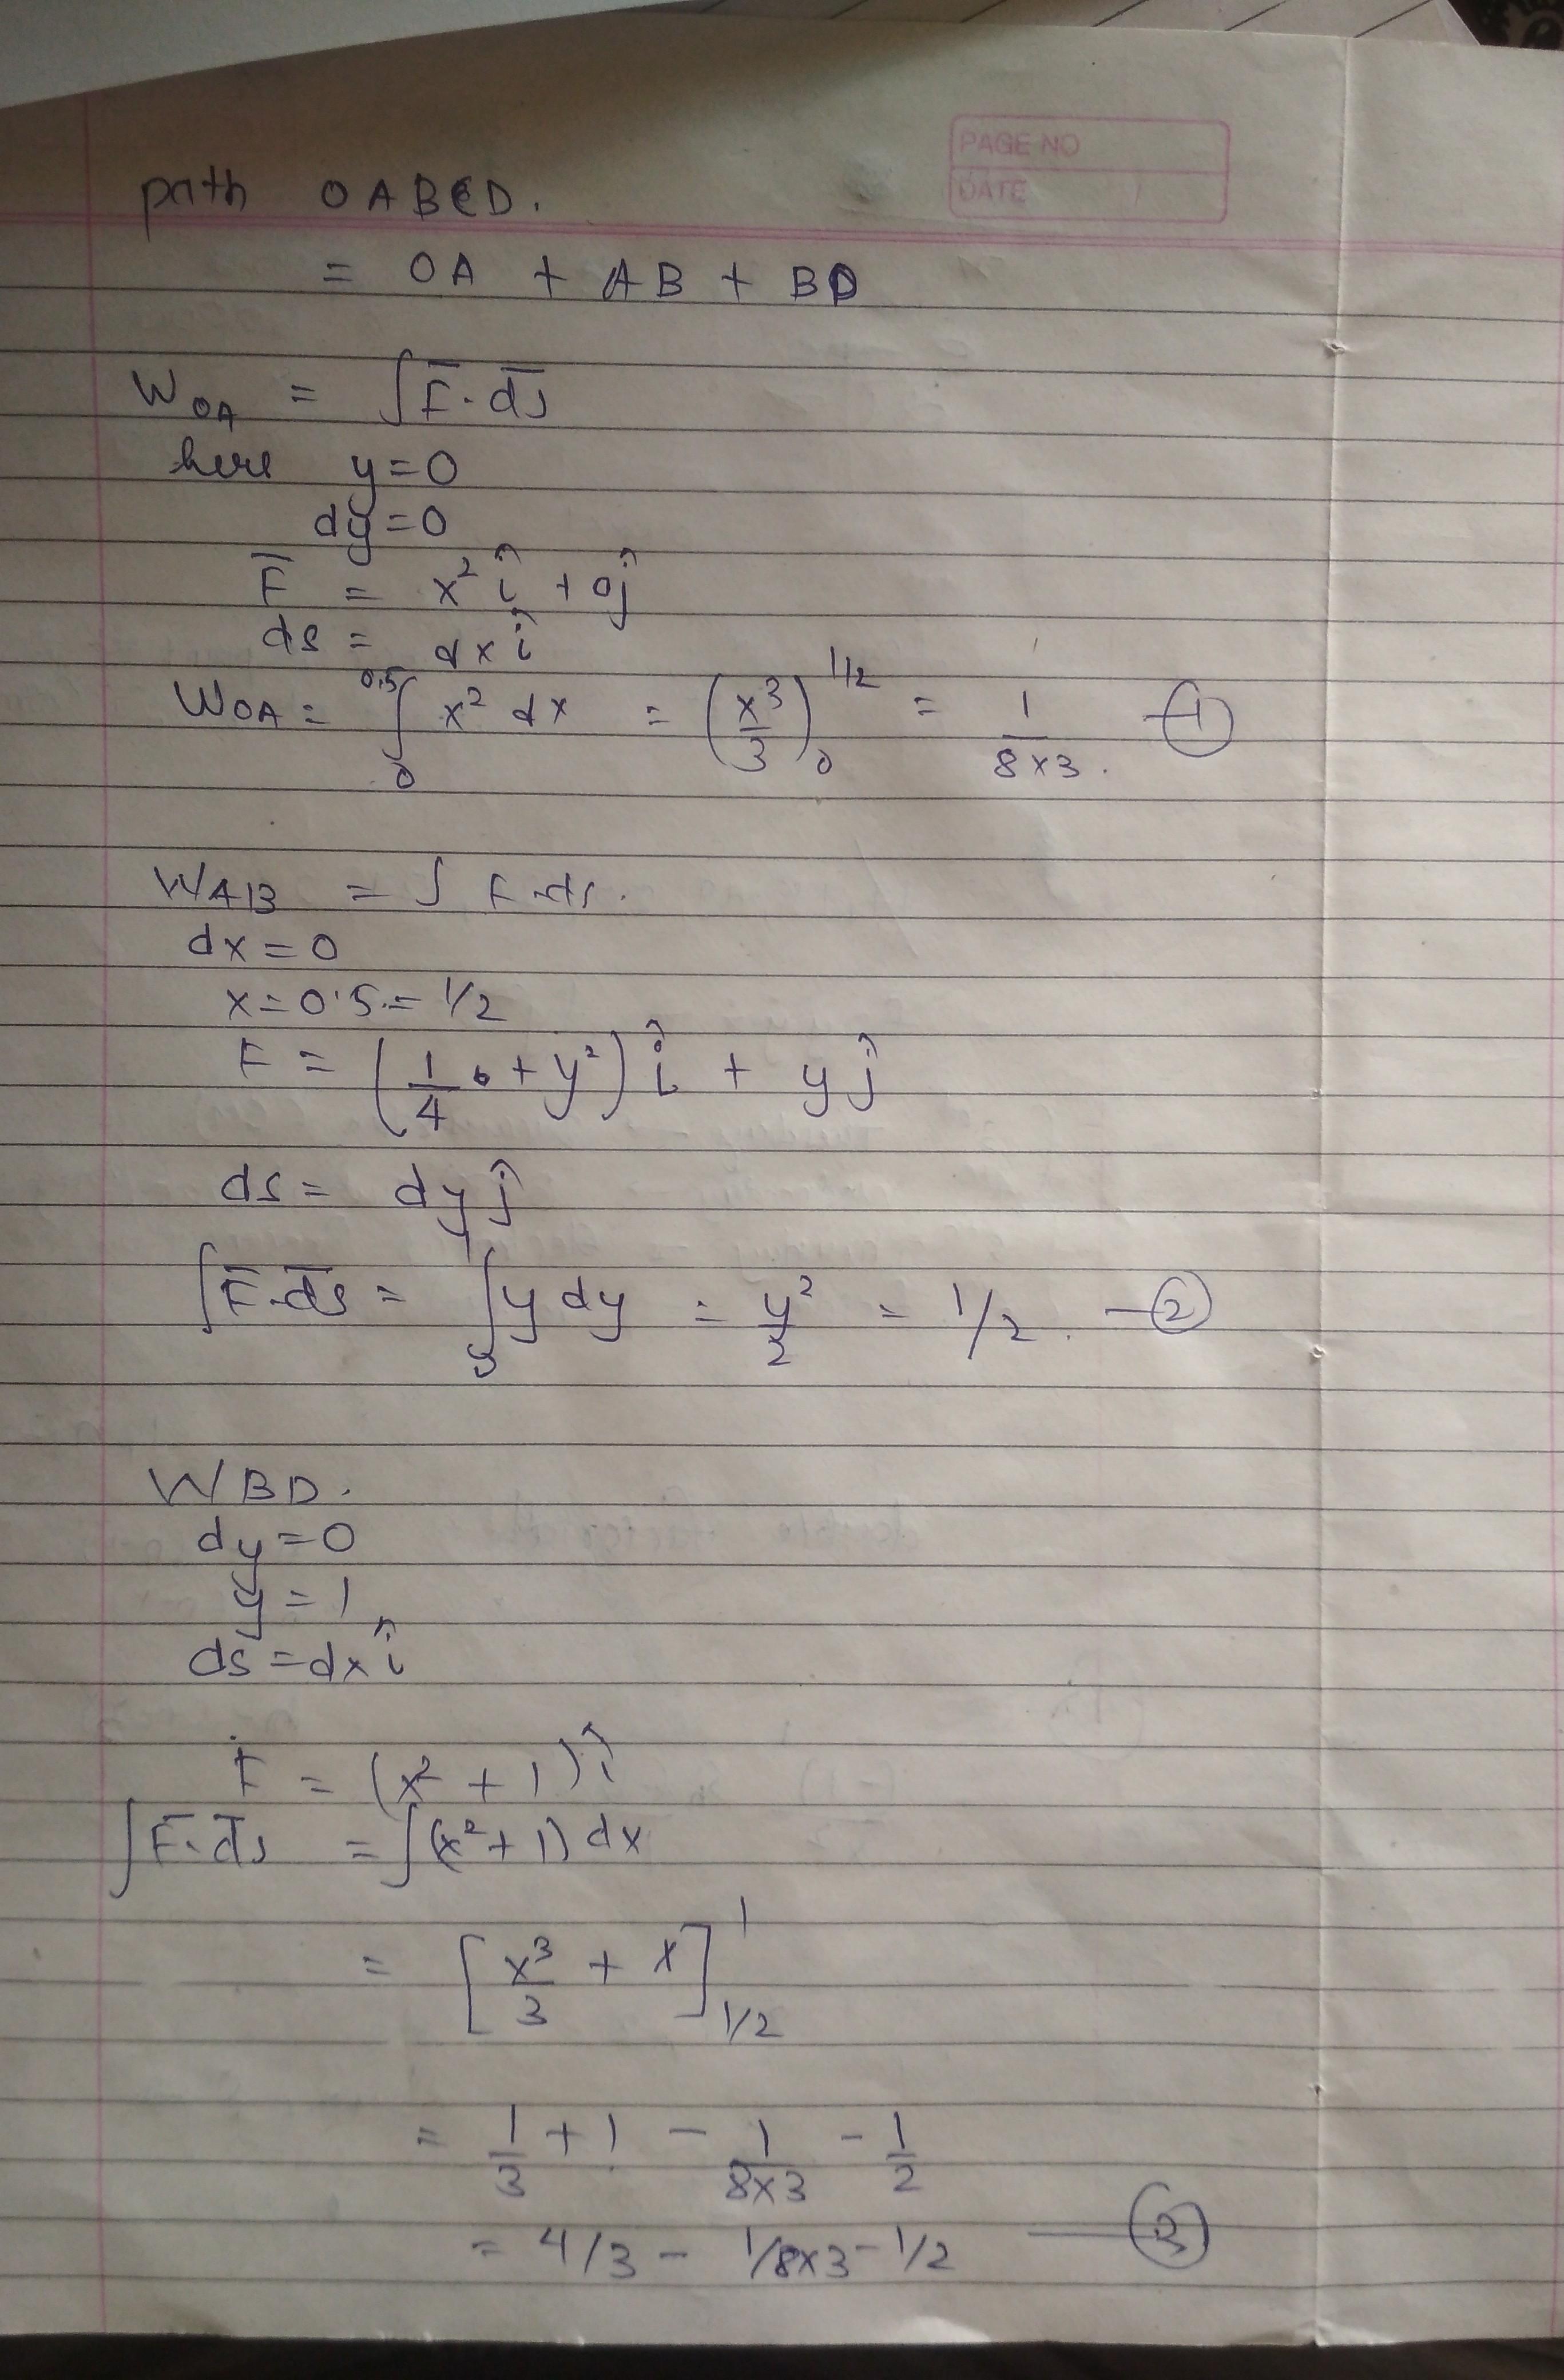 PAGE NO
DATE
path OABCD.
= OA + AB + BD
W_OA = ∫F̅·d̅s̅
here y=0
dy=0
F̅ = x² î + 0ĵ
ds = dx î
W_OA = ∫₀^0.5 x² dx = (x³/3)₀^1/2 = 1/(8×3). —①
W_AB = ∫ F·ds.
dx=0
x=0.5.=1/2
F = (1/4 + y²) î + y ĵ
ds = dy ĵ
∫F̅·d̅s̅ = ∫₀^1 y dy = y²/2 = 1/2. —②
W_BD.
dy=0
y=1
ds=dx î
F = (x² + 1) î
∫F̅·d̅s̅ = ∫(x²+1) dx
= [x³/3 + x]_1/2^1
= 1/3 + 1 - 1/(8×3) - 1/2
= 4/3 - 1/8×3 - 1/2 —③